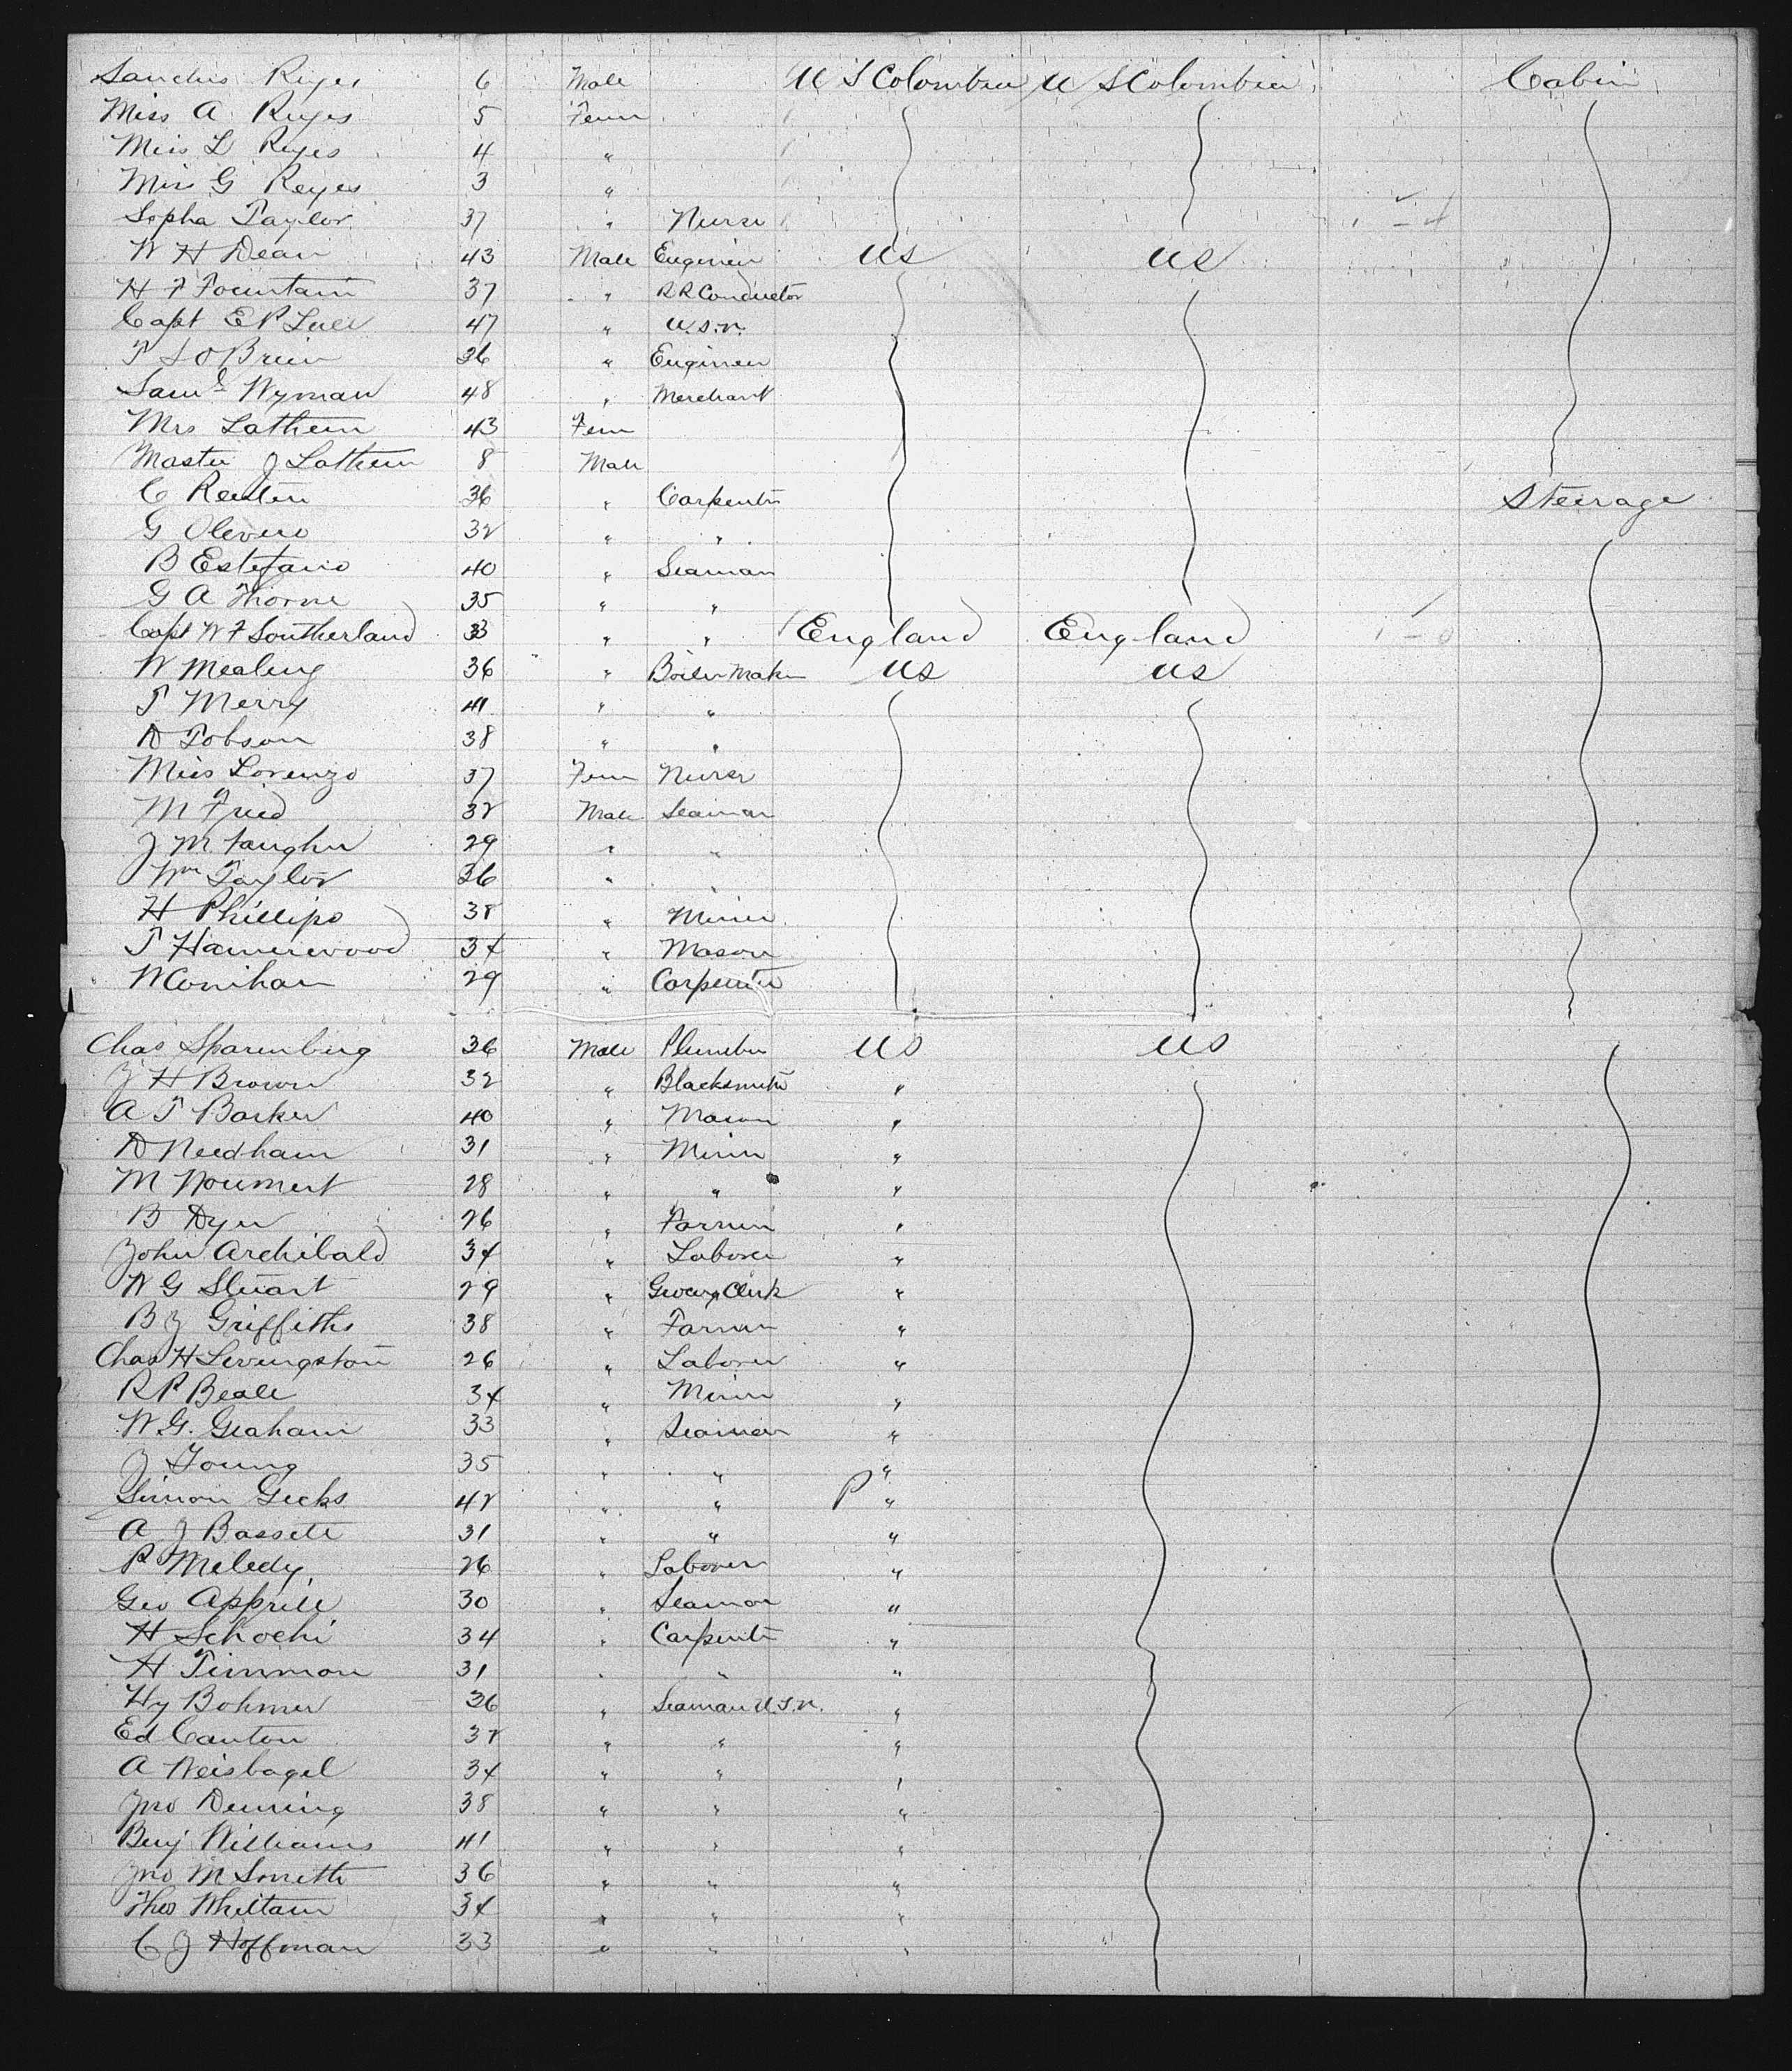 Sanchis Reyes 6 Male U S Colombia U S Colombia Cabin
Miss A Reyes 5 Fem
Miss L Reyes 4 "
Miss G Reyes 3 "
Sopha Taylor 37 " Nurse
W H Dean 43 Male Engineer US US
H F Fountain 37 " RR Conductor
Capt E P Lull 47 " U.S.N.
T J O Brien 36 " Engineer
Saml Wyman 48 " Merchant
Mrs Lathem 43 Fem
Master J Lathem 8 Male
C Reuten 36 " Carpenter Steerage
G Olevero 32 " "
B Estefano 40 " Seaman
G A Thorne 35 " "
Capt W F Southerland 33 " " England England
W Mealing 36 " Boiler Maker US US
T Merry 41 " "
D Tobson 38 " "
Miss Lorenzo 37 Fem Nurse
M Fried 32 Male Seaman
J M Vaughn 29 " "
Wm Taylor 36 "
H Phillips 38 " Miner
T Hamerwood 34 " Mason
W Conihan 29 " Carpenter
Chas Sparenberg 36 Male Plumber US US
J H Brown 32 " Blacksmith "
A T Barker 40 " Mason "
D Needham 31 " Miner "
M Noument 28 " " "
B Dyer 26 " Farmer "
John Archibald 34 " Laborer "
W G Stuart 29 " Grocery Clerk "
B J Griffiths 38 " Farmer "
Chas H Levingston 26 " Laborer "
R P Beale 34 " Miner "
W. G. Graham 33 " Seaman "
J Young 35 " " "
Simon Geeks 42 " " P "
A J Bassett 31 " " "
P Meledy 26 " Laborer "
Geo Apprill 30 " Seaman "
H Schoehi 34 " Carpenter "
H Timmon 31 " " "
Hy Bohmer 26 " Seaman U.S.N. "
Ed Canton 32 " " "
A Weisbagel 34 " " "
Jno Deming 38 " " "
Benj Williams 41 " " "
Jno M Smith 36 " " "
Theo Whittam 34 " " "
C J Hoffman 33 " " "